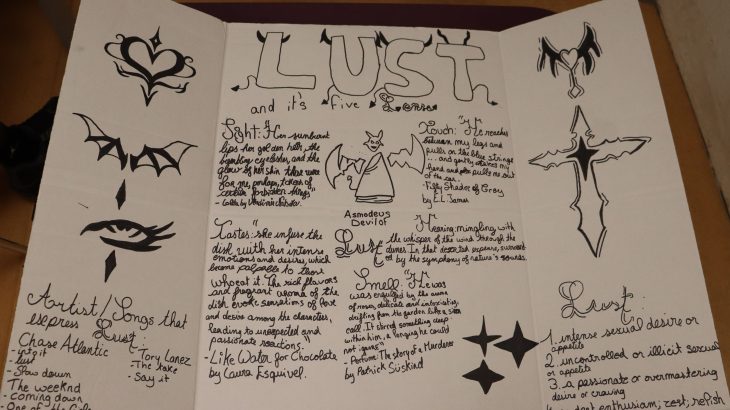 LUST
and it's five Lense
Sight: "Her sunburnt
lips her golden hills, the
bumbling eyelashes, and the
glow of her skin these were
for me, perhaps, tokens of
certain forbidden things"
Touch: "He reaches
between my legs and
pulls on the blue strings
... and gently
and pulls me out
of the car.
- Fifty Shades of Grey
by E.L James
Asmodeus
Devil of
Lust
Tastes: "she infuse the
dish with her intense
emotions and desires, which
become palpable to those
who eat it. The rich flavors
and fragrant aroma of the
dish evoke sensations of love
and desire among the characters,
leading to unexpected and
passionate reactions."
- Like Water for Chocolate
by Laura Esquivel.
Hearing: mingling with
the whisper of the wind through the
dunes. In that deserted expanse, surround
ed by the symphony of nature's sounds.
Smell: "He was
was engulfed by the aroma
of roses, delicate and intoxicating,
drifting from the garden like a siren
call. It stirred something deep
within him, a longing he could
not ignore"
- Perfume: The story of a Murderer
by Patrick Süskind
Artist/Songs that
express Lust:
Chase Atlantic
- into it
- lust
- Slow down
The weeknd
- Coming down
- One of the Girls
Tory Lanez
- The take
- Say it
Lust:
1. intense sexual desire or
appetite
2. uncontrolled or illicit sexual
or appetite
3. a passionate or overmastering
desire or craving
enthusiasm; zest; relish